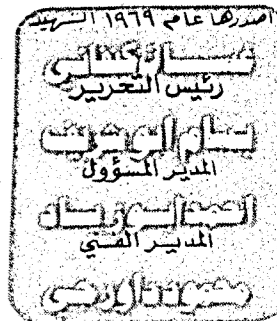 أصدرها عام ١٩٦٩ الشهيد
غسان كنفاني
رئيس التحرير
بسام أبو شريف
المدير المسؤول
المدير الفني